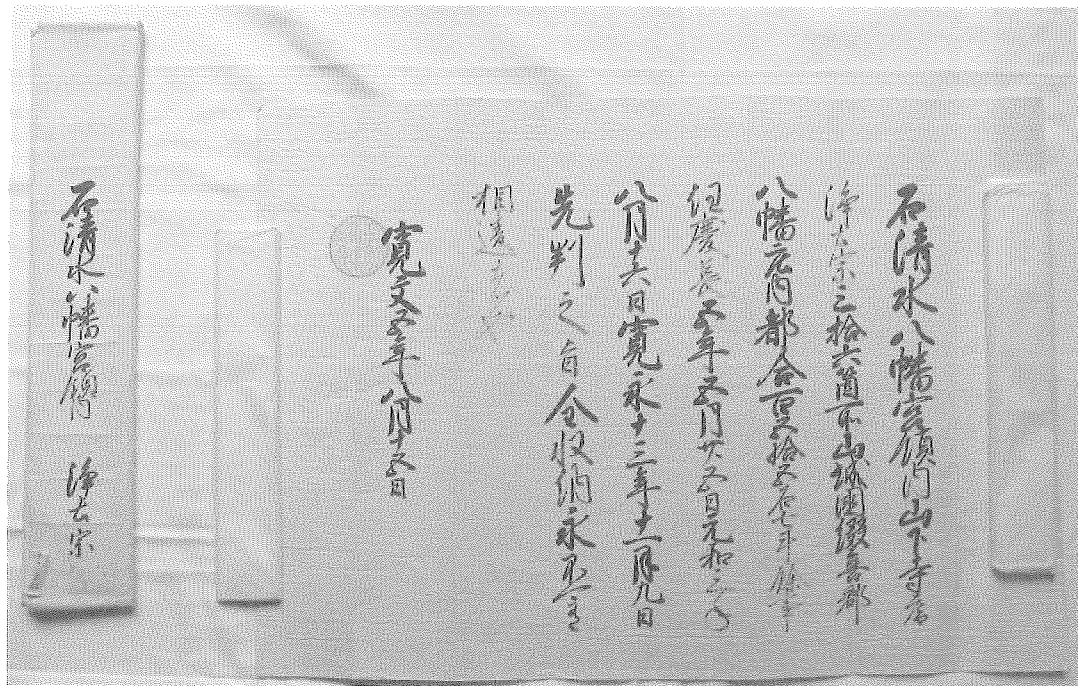 石清水八幡宮領内山下寺庵
浄土宗三拾六箇所山城国綴喜郡
八幡庄内都合百五拾五石七斗餘事
任慶長五年五月廿五日元和三年
八月十六日寛永十三年十一月九日
先判之旨全収納永不可有
相違者也
寛文五年八月十五日
石清水八幡宮領内 浄土宗